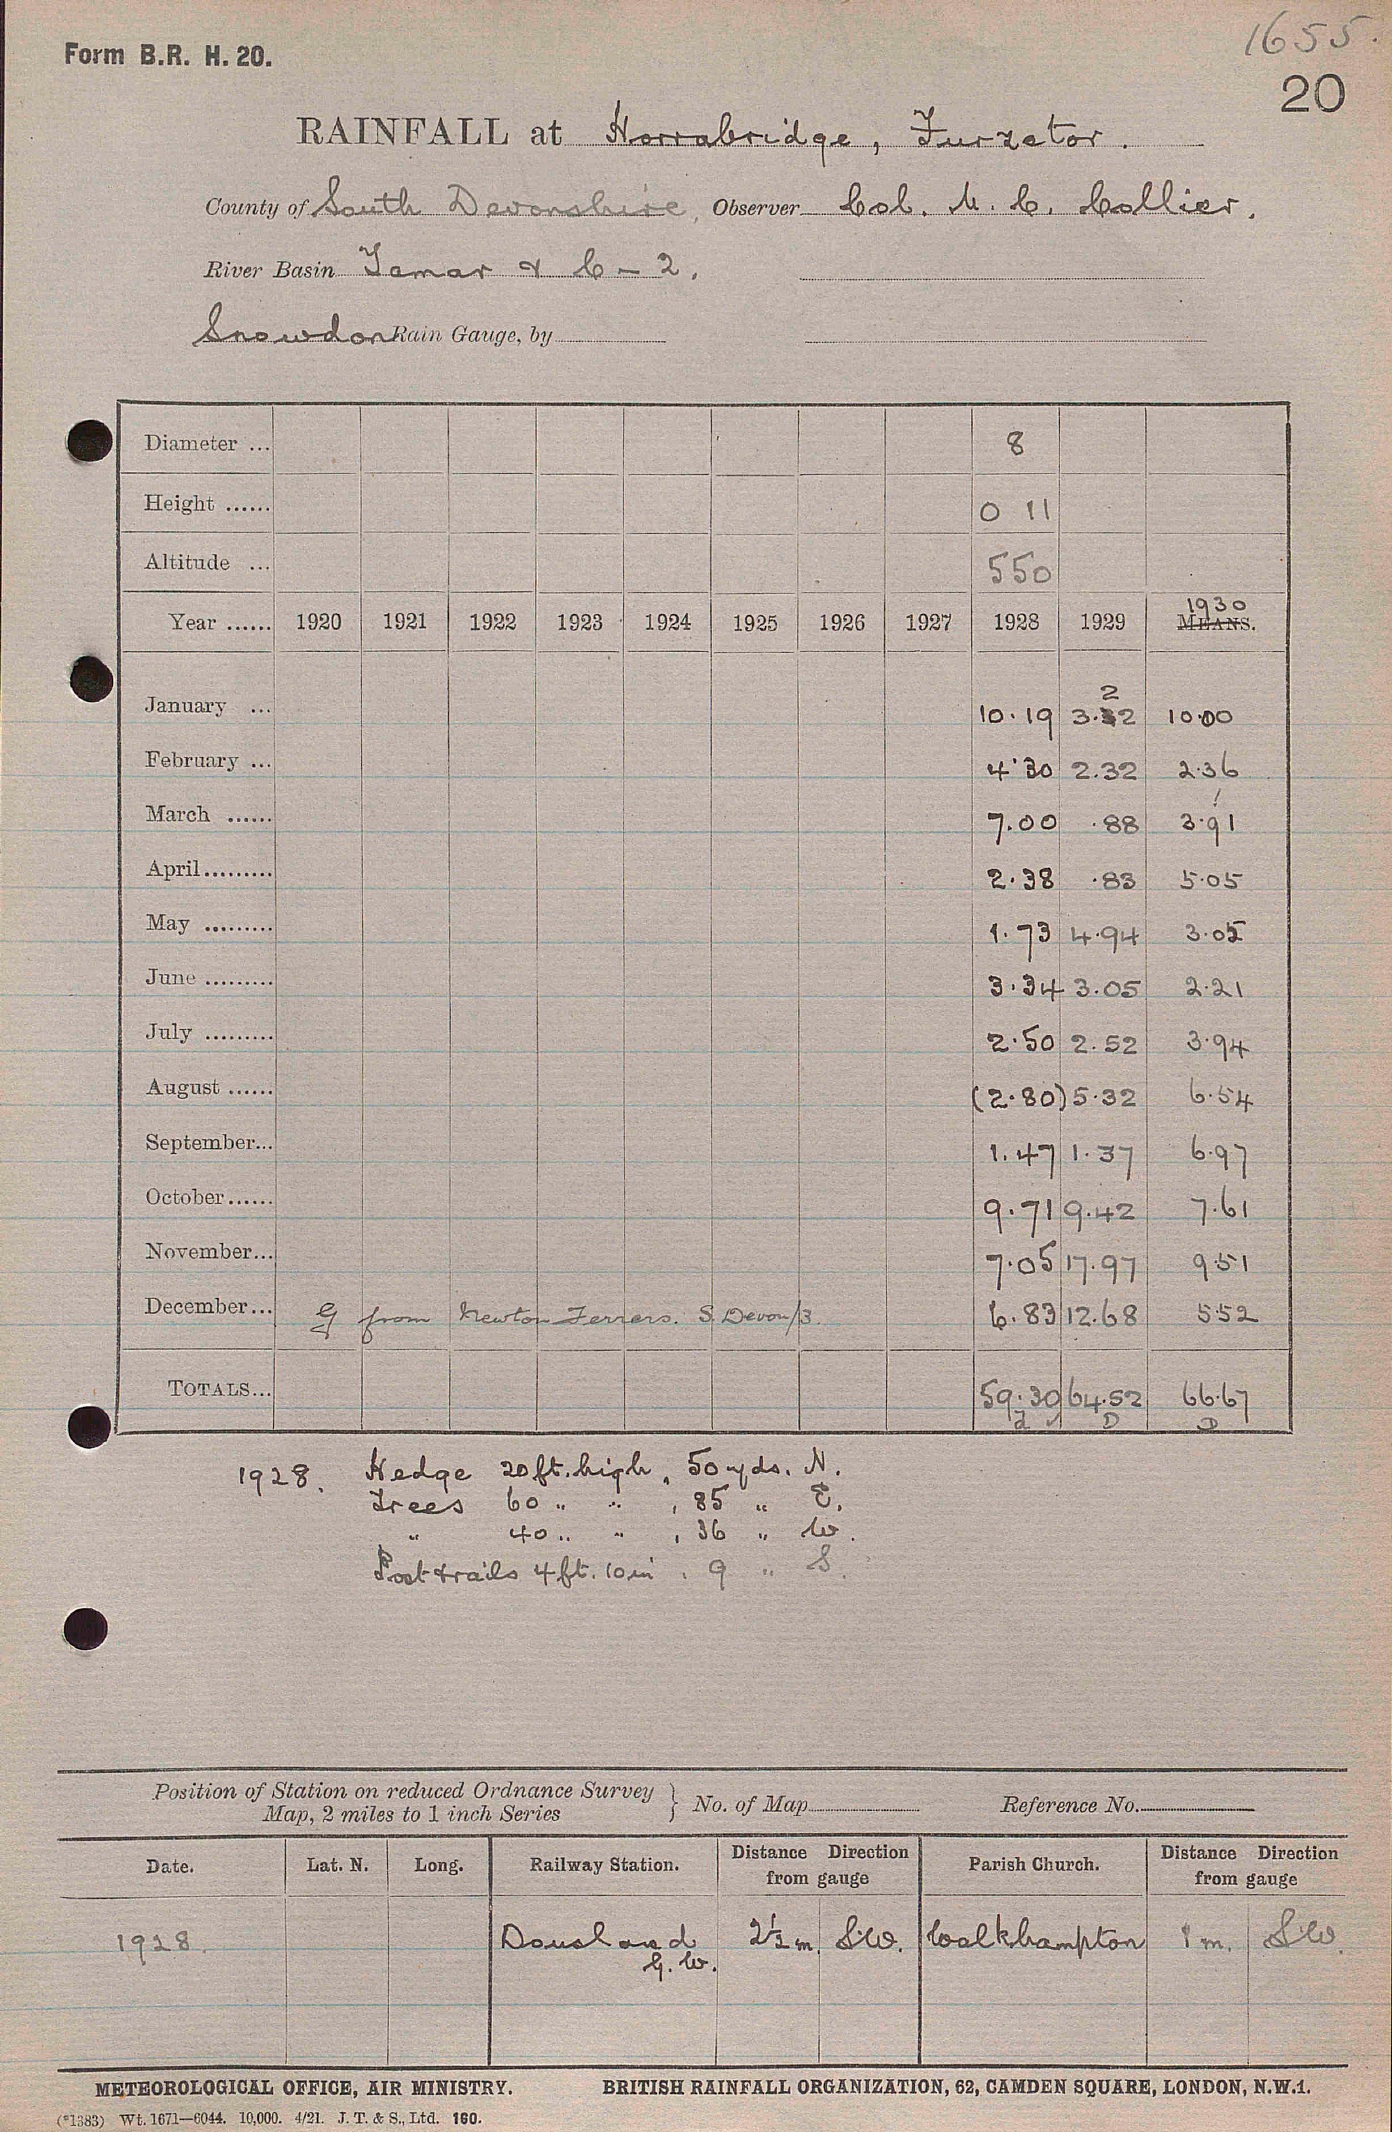 1655.
Form B.R. H. 20.
20
RAINFALL at Horrabridge, Furzetor.
County of South Devonshire, Observer Col. M. C. Collier.
River Basin Tamar & C – 2.
Snowdon Rain Gauge, by
Diameter ... 8
Height ...... 0 11
Altitude ... 550
Year ...... 1920 1921 1922 1923 1924 1925 1926 1927 1928 1929 1930 MEANS.
2
January ... 10.19 3.32 10.00
February ... 4.30 2.32 2.36
March ...... 7.00 .88 3.91
April ......... 2.38 .83 5.05
May ......... 1.73 4.94 3.05
June ......... 3.34 3.05 2.21
July ......... 2.50 2.52 3.94
August ...... (2.80) 5.32 6.54
September... 1.47 1.37 6.97
October ...... 9.71 9.42 7.61
November... 7.05 17.97 9.51
December... G from Newton Ferrers. S. Devon/3. 6.83 12.68 5.52
TOTALS... 59.30 64.52 66.67
D D
1928. Hedge 20 ft. high, 50 yds. N.
Trees 60 " " , 85 " E.
" 40 " " , 36 " W.
Post & rails 4 ft. 10 in , 9 " S.
Position of Station on reduced Ordnance Survey Map, 2 miles to 1 inch Series } No. of Map Reference No.
Date. Lat. N. Long. Railway Station. Distance Direction from gauge Parish Church. Distance Direction from gauge
1928. Dousland G.W. 2½ m. S.W. Walkhampton 1 m. S.W.
METEOROLOGICAL OFFICE, AIR MINISTRY. BRITISH RAINFALL ORGANIZATION, 62, CAMDEN SQUARE, LONDON, N.W.1.
(*1383) Wt. 1671—6044. 10,000. 4/21. J. T. & S., Ltd. 160.